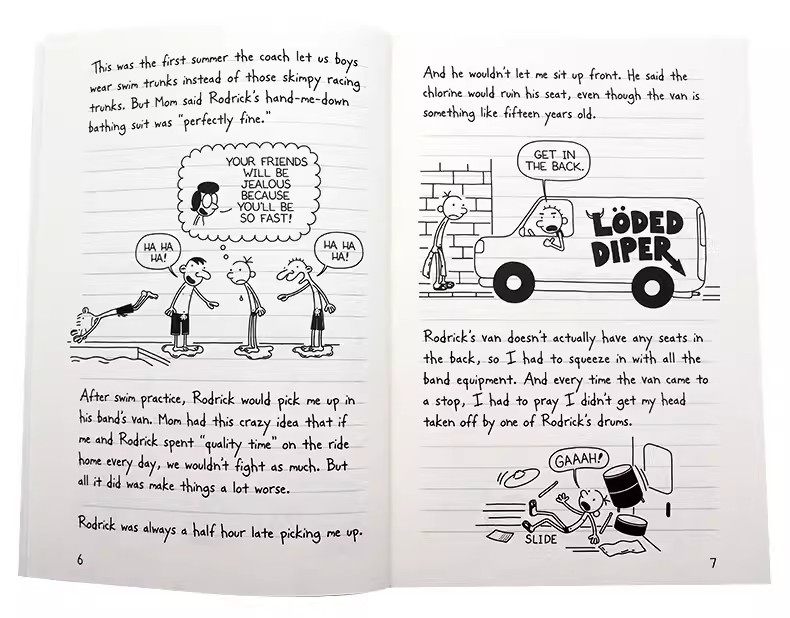 This was the first summer the coach let us boys
wear swim trunks instead of those skimpy racing
trunks. But Mom said Rodrick's hand-me-down
bathing suit was "perfectly fine."
YOUR FRIENDS
WILL BE
JEALOUS
BECAUSE
YOU'LL BE
SO FAST!
HA HA
HA!
HA HA
HA!
After swim practice, Rodrick would pick me up in
his band's van. Mom had this crazy idea that if
me and Rodrick spent "quality time" on the ride
home every day, we wouldn't fight as much. But
all it did was make things a lot worse.
Rodrick was always a half hour late picking me up.
6
And he wouldn't let me sit up front. He said the
chlorine would ruin his seat, even though the van is
something like fifteen years old.
GET IN
THE BACK.
LÖDED
DIPER
Rodrick's van doesn't actually have any seats in
the back, so I had to squeeze in with all the
band equipment. And every time the van came to
a stop, I had to pray I didn't get my head
taken off by one of Rodrick's drums.
GAAAH!
SLIDE
7